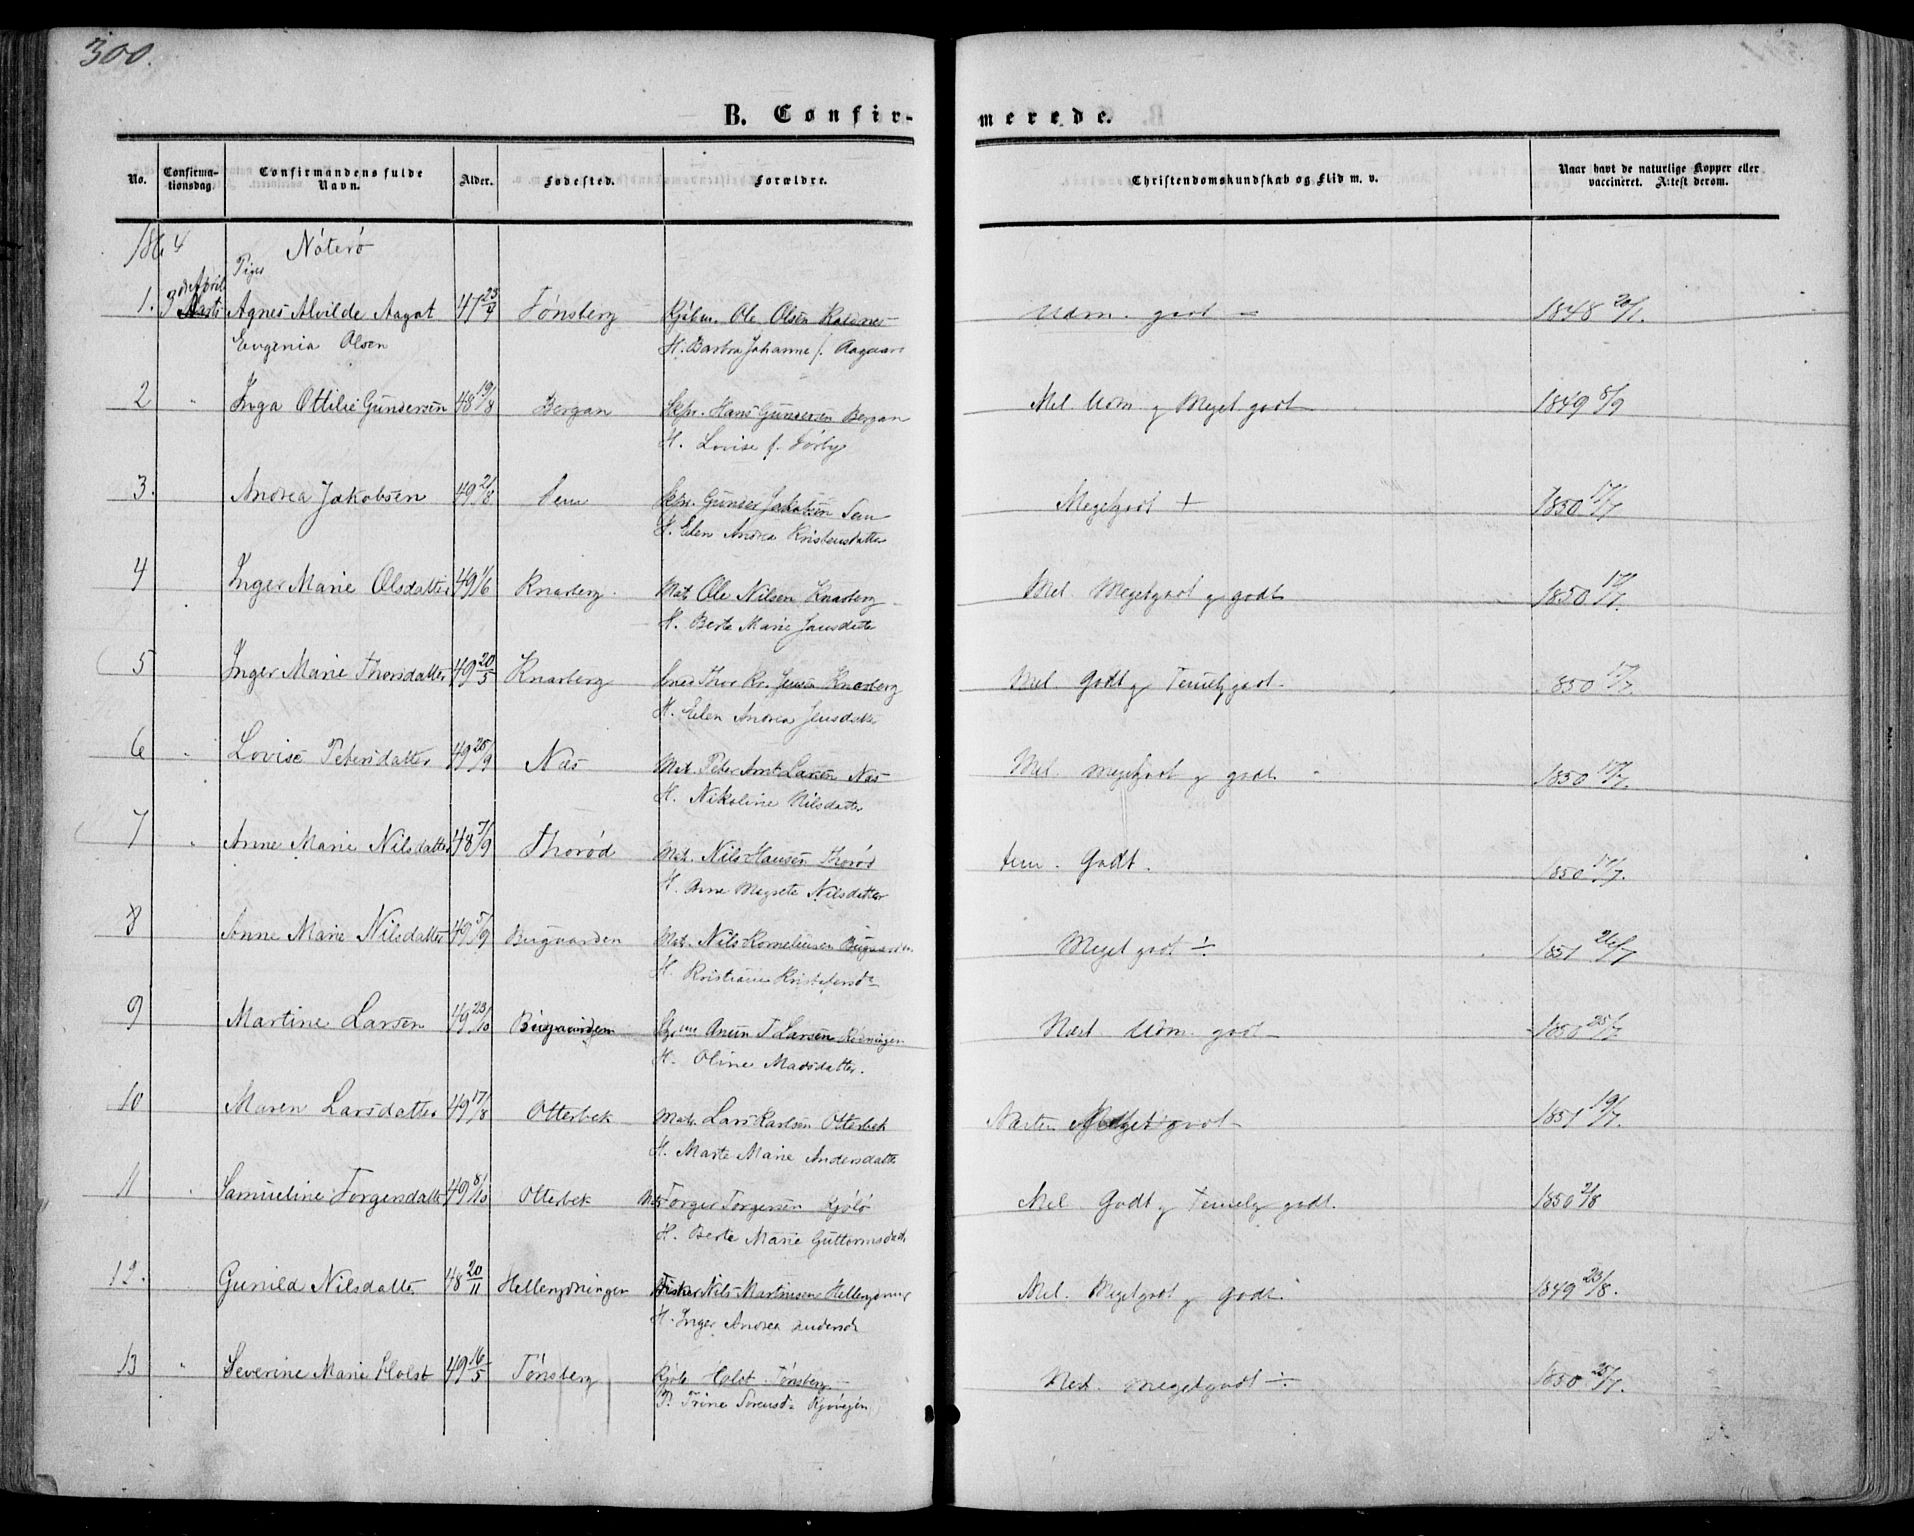 300.
B. Confir-
merede.
No.
Confirma-
tionsdag.
Confirmandens fulde
Navn.
Alder.
Fødested.
Forældre.
Christendomskundskab og Flid m. v.
Naar havt de naturlige Kopper eller
vaccineret. Attest derom.
1864 Nöterö
Piger
1. 3 April Agnes Alvilde Aagot 47 23/9 Tønsberg Kjøbm. Ole Olsen Kaldnes Udm. godt 1848 20/1.
Evgenia Olsen H. Barbra Johanne f. Aagaard
2 " Inga Ottilie Gundersen 48 19/8 Bergan Skpr. Hans Gundersen Bergan Mel. Udm y Meget godt 1849 8/9
H. Lovise f. Førby
3. Andrea Jakobsen 49 2/8 Sem Skpr. Gunder Jakobsen Sem Megetgodt + 1850 17/7
H. Elen Andrea Kristensdatter
4 Inger Marie Olsdatter 49 1/6 Knarberg Mat. Ole Nilsen Knarberg Mel. Megetgodt y godt 1850 17/7.
H. Berte Marie Jansdatte
5 Inger Marie Thorsdatter 49 20/5 Knarberg Thor Kr. Jensen Knarberg Mel. Godt y Temelig godt 1850 17/7.
H. Elen Andrea Jensdatte
6 " Lovise Petersdatter 49 25/9 Næs Mat. Peter Ant Larsen Næs Mel. Megetgodt y godt 1850 17/7.
H. Nikoline Nilsdatter
7 " Anne Marie Nilsdatter 48 7/9 Thorød Mat. Nils Hansen Thorød tem. Godt. 1850 17/7.
H. Anne Magrete Nilsdatter
8 Anne Marie Nilsdatter 49 5/9 Bugaarden Mat. Nils Korneliusen Bugaarden Meget godt ÷ 1851 26/7
H. Kristiane Kristofersd
9 Martine Larsen 49 23/10 Bugaarden Anun T Larsen Rødningen Næst Udm. godt 1850 25/7
H. Oline Madsdatter.
10 Maren Larsdatter 49 17/8 Otterbek Mat. Lars Karlsen Otterbek Næsten Meget godt 1851 19/7.
H. Marte Marie Andersdatte
11 " Samueline Torgersdatte 49 8/10 Otterbek Mat. Torger Torgersen Kjølø Mel. Godt y Temelig godt. 1850 2/8
H. Berte Marie Guttormsdatt
12. " Gunild Nilsdatter 48 20/11 Hellenydningen Fisker Nils Martinsen Mel. Megetgodt y Godt. 1849 23/8.
H. Inger Andrea Andersd
13 " Severine Marie Holst 49 16/5 Tønsberg Kjøb Holst Tønsberg Megetgodt ÷ 1850 25/7.
P. Trine Sorensd